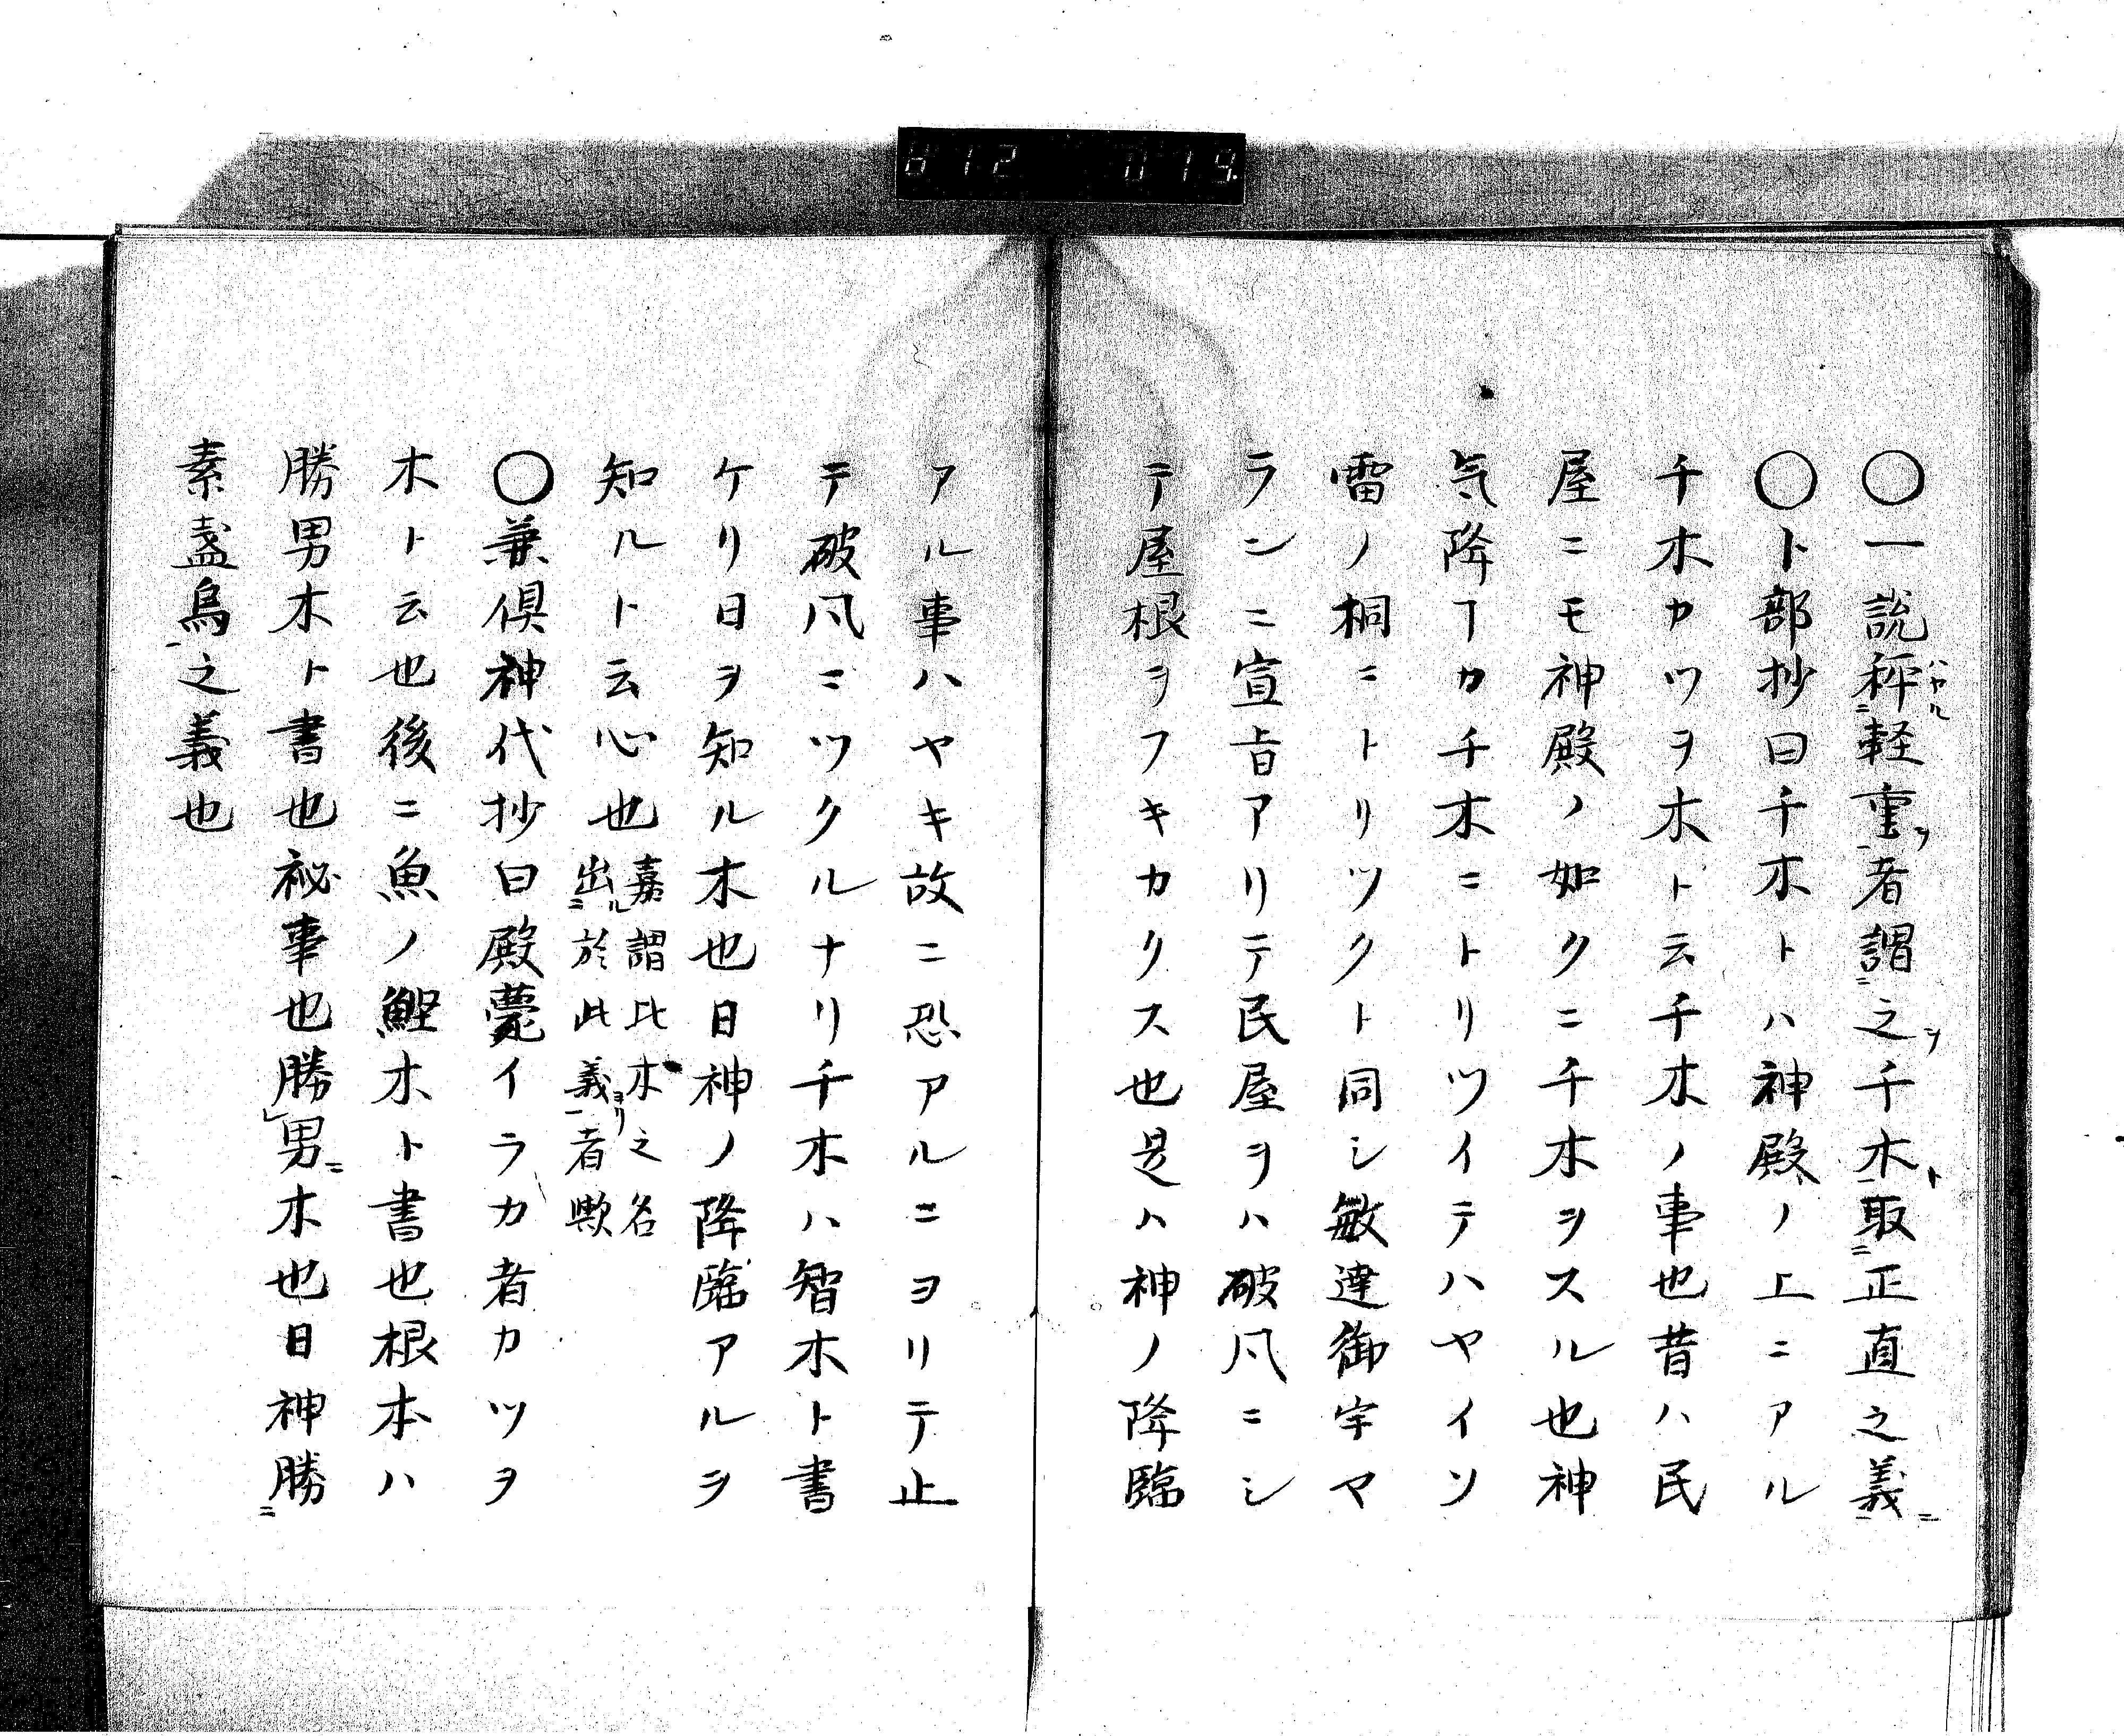 〇一説秤軽重者謂之千木取正直之義
〇卜部抄曰千木トハ神殿ノ上ニアル
千木カツヲ木ト云千木ノ事也昔ハ民
屋ニモ神殿ノ如クニ千木ヲスル也神
気降ヿカ千木ニトリツイテハヤイソ
雷ノ桐ニトリツクト同シ敏達御宇マ
ランニ宣旨アリテ民屋ヲハ破凡ニシ
テ屋根ヲフキカクス也是ハ神ノ降臨
アル事ハヤキ故ニ恐アルニヨリテ止
テ破凡ニツクルナリ千木ハ智木ト書
ケリ日ヲ知ル木也日神ノ降臨アルヲ
知ルト云心也嘉謂此木之名
出於此義者歟
〇兼倶神代抄曰殿甍イラカ者カツヲ
木ト云也後ニ魚ノ鰹木ト書也根本ハ
勝男木ト書也秘事也勝男木也日神勝
素盞烏之義也